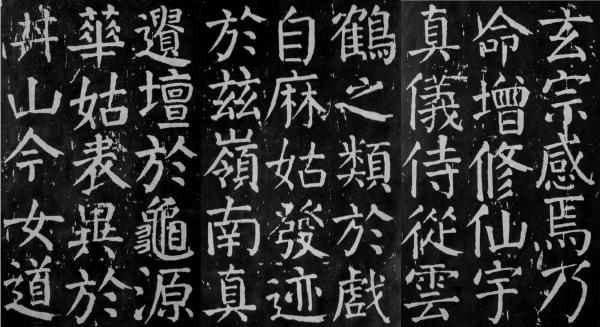 玄宗感焉乃
命增修仙宇
真儀侍從雲
鶴之類於戲
自麻姑發迹
於茲嶺南真
遺壇於龜源
華姑表異於
井山今女道